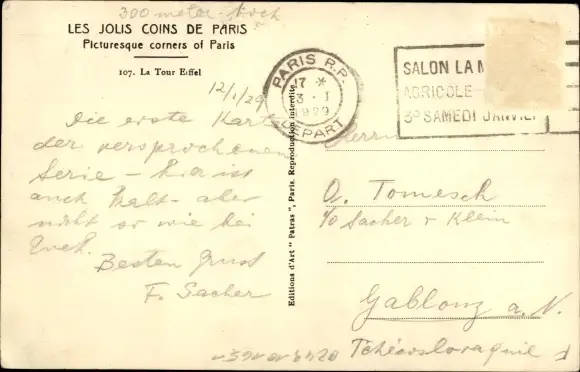 300 meter hoch
LES JOLIS COINS DE PARIS
Picturesque corners of Paris
107. La Tour Eiffel
12/1/29
Die erste Karte
der versprochenen
Serie – hier ist
auch kalt – aber
nicht so wie bei
Euch.
Besten Gruss
F. Sacher
Editions d'Art " Patras ", Paris. Reproduction interdite.
PARIS R.P.
17 *
3 · I
1929
DEPART
SALON LA M
AGRICOLE
3e SAMEDI JANVIER
Herrn
O. Tomesch
c/o Sacher & Klein
Gablonz a. N.
Tchécoslovaquie